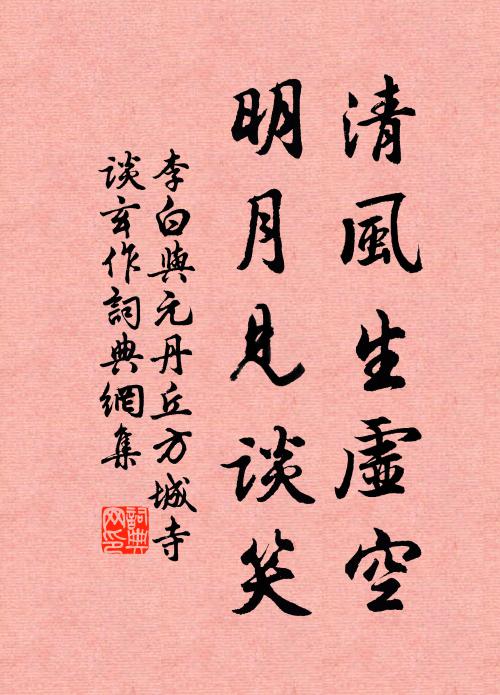 清風生虛空
明月見谈笑
李白與元丹丘方城寺
谈玄作詞典網集
詞典
网印